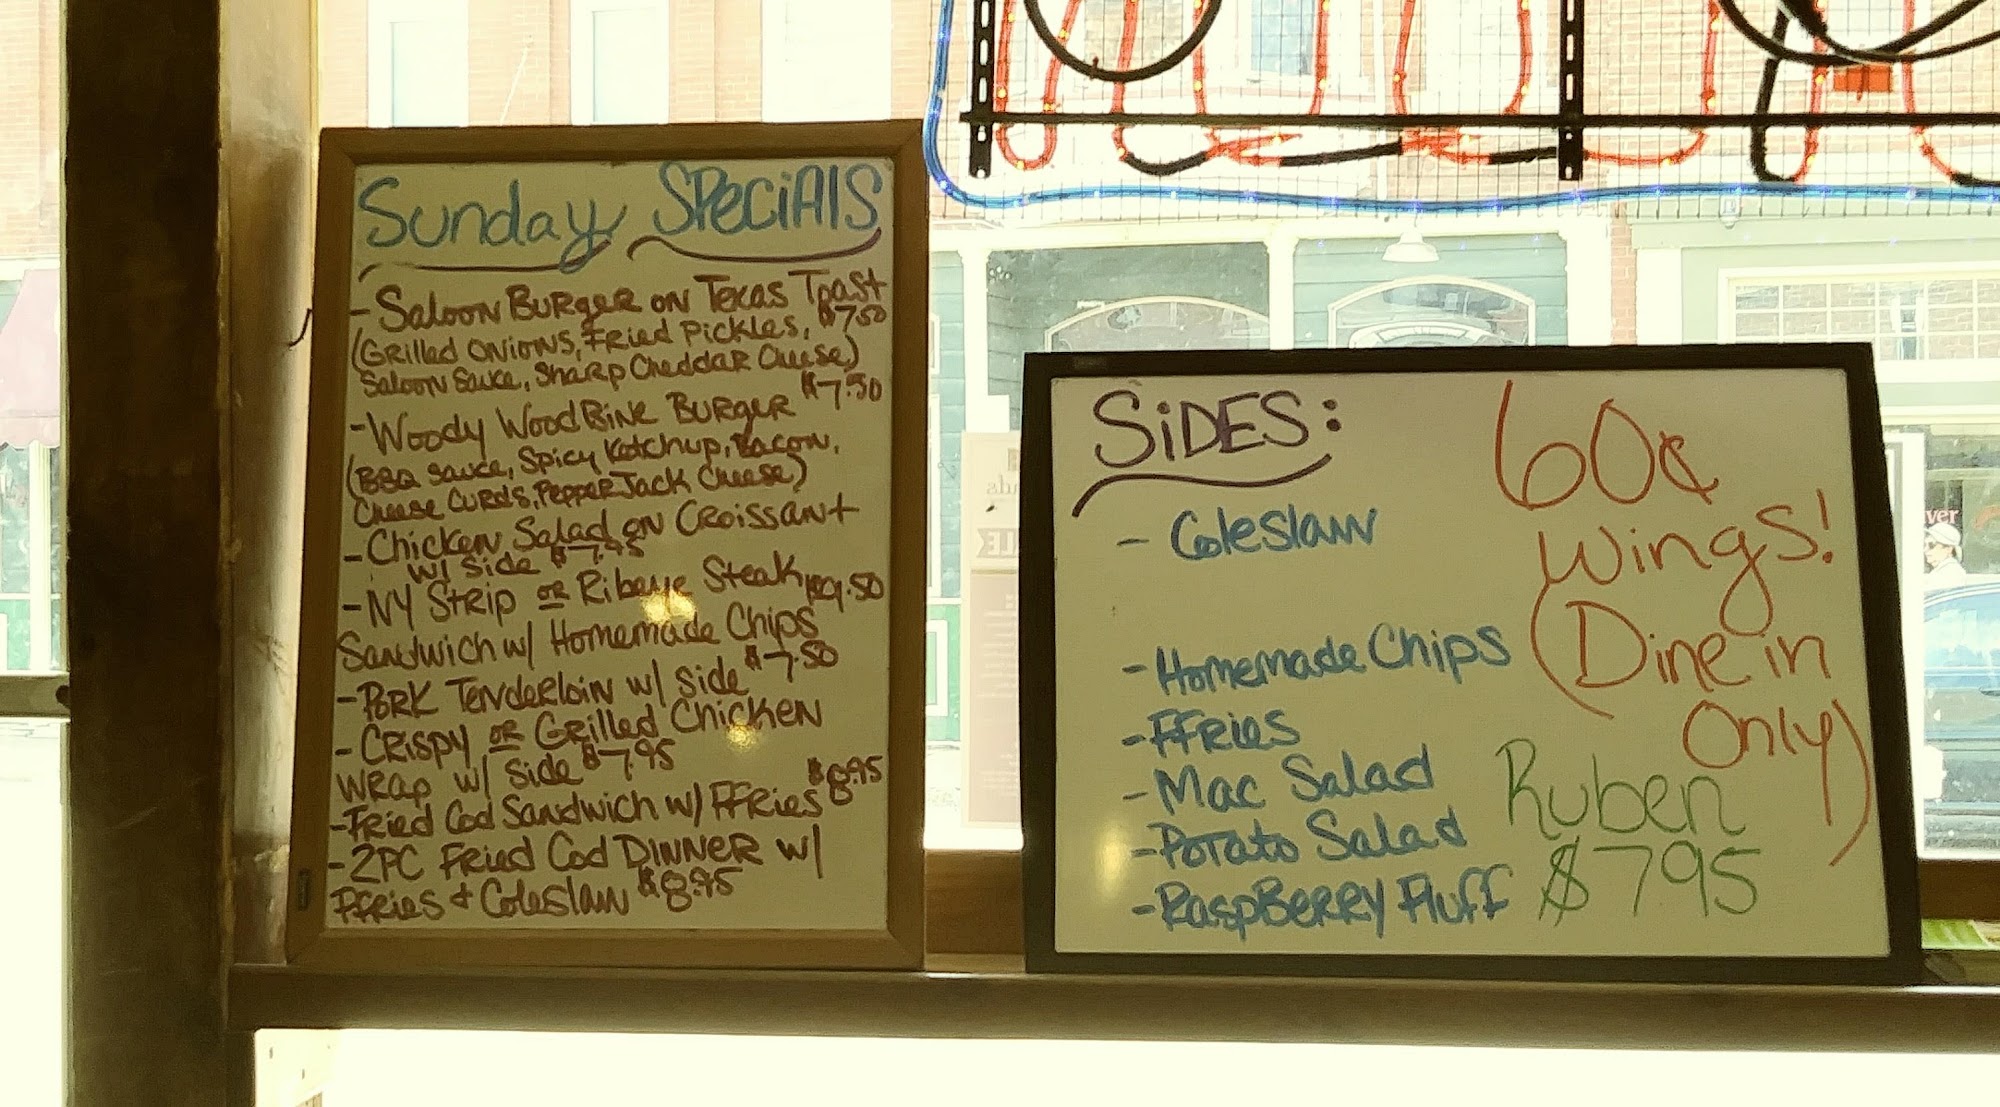 Sunday SPeCiAlS
- Saloon Burger on Texas Toast
$7.50
(Grilled Onions, Fried Pickles,
Saloon Sauce, Sharp Cheddar Cheese)
- Woody WoodBine Burger $7.50
(BBQ Sauce, Spicy Ketchup, Bacon,
Cheese Curds, Pepper Jack Cheese)
- Chicken Salad on Croissant
w/ Side $7.95
- NY Strip or Ribeye Steak $9.50
Sandwich w/ Homemade Chips
- Pork Tenderloin w/ Side $7.50
- Crispy or Grilled Chicken
Wrap w/ Side $7.95
- Fried Cod Sandwich w/ FFries $8.95
- 2PC Fried Cod DINNER w/
FFries + Coleslaw $8.95
SiDES:
- Coleslaw
- Homemade Chips
- FFries
- Mac Salad
- Potato Salad
- RaspBerry Fluff
60¢
Wings!
(Dine in
Only)
Ruben
$795